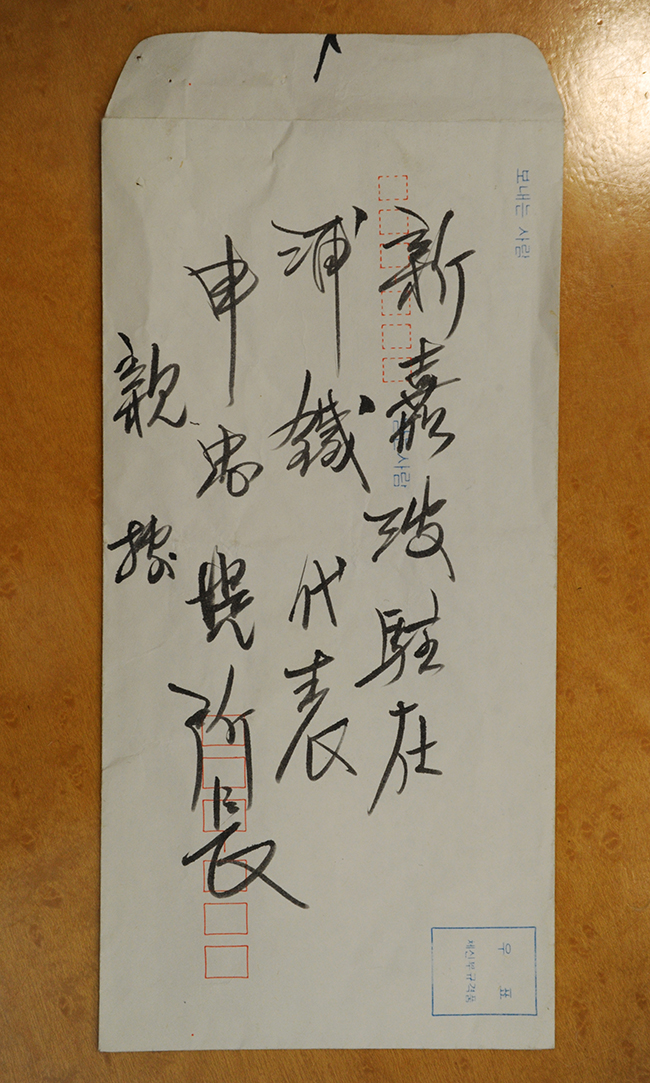 보내는 사람
新嘉坡駐在
浦鐵代表
申忠 所長
親
사람
우표
체신부규격품